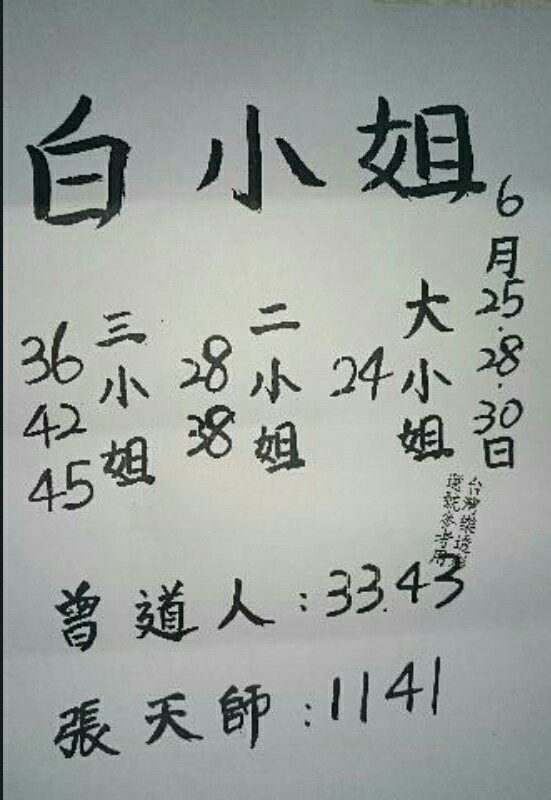 白小姐
6月25.28.30日
大小姐
24
二小姐
28
38
三小姐
36
42
45
台灣樂透彩
選號參考用
曾道人:33.43
張天師:1141